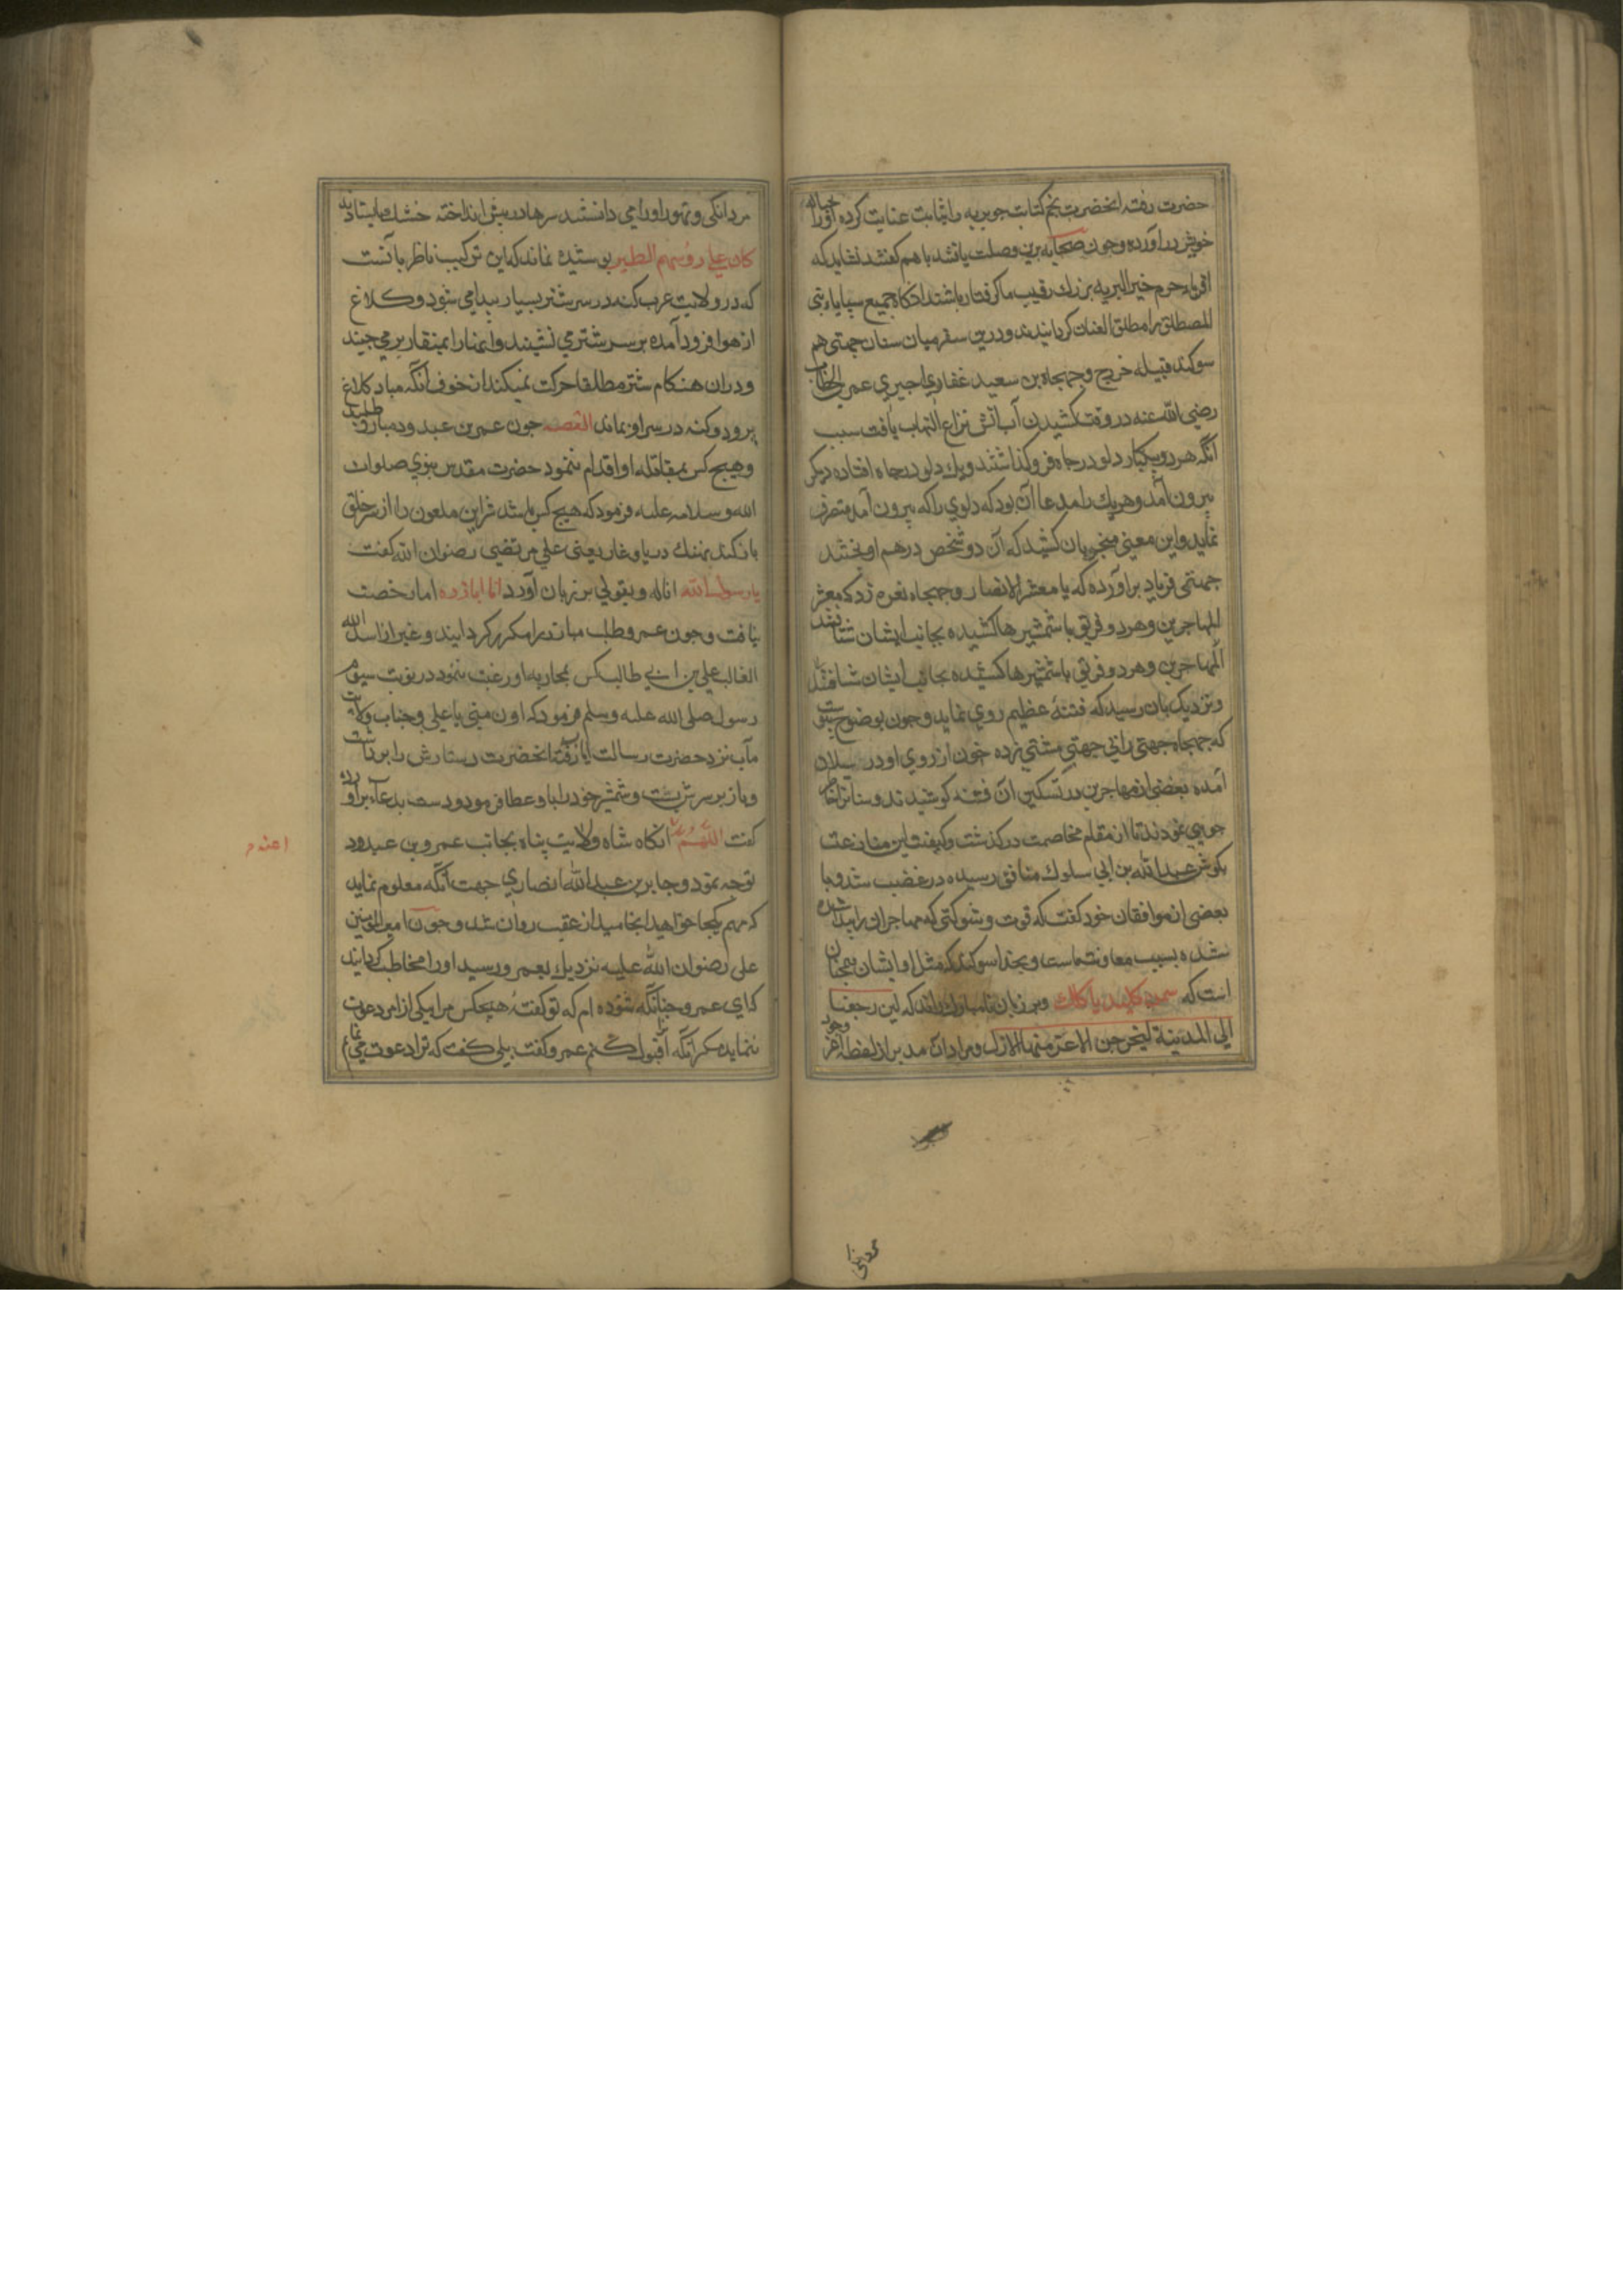 حضرت رفته انحضرت نجم کتابت جویریه را بثابت عنایت کرده اورا حباله
خویش دراورده وجون صحابه برین وصلت یافتند باهم کفتند نشاید که
اقرباء حرم خیر البریه بزرك رقیب ما کرفتار باشند انکاه جمیع سبایاء بنی
المصطلق را مطلق العنان کردانیدند ودرین سفر میان سنان جهنی هم
سوکند قبیله خزرج وجهجاه بن سعید غفاری اجیری عمر الخطاب
رضی الله عنه در وقت کشیدن آب اتش نزاع التهاب یافت سبب
انکه هر دو بیکبار دلو در جاه فرو کذاشتند ویك دلو در جاه افتاده دیکر
بیرون آمد وهریك را مدعا آن بود که دلوی را که بیرون آمد متصرف
نماید واین معنی منجر بان کشید که آن دو شخص درهم اویختند
جهنی فریاد براورده که یا معشر الانصار وجهجاه نعره زد که معشر
المهاجرین وهر دو فریق با شمشیرها کشیده بجانب ایشان شتافتند
المهاجرین وهر دو فریق با شمشیرها کشیده بجانب ایشان شتافتند
ونزدیک بان رسید که فتنهٔ عظیم روی نماید وجون بوضوح بیوست
که جهجاه جهنی را فی جهتی مشتی زده خون از روی او در سیلان
آمده بعضی از مهاجرین در تسکین آن فتنه کوشیدند وسنانرا خاطر
جویی نمودند تا از مقام مخاصمت درکذشت وکیفیت این منازعت
بکوش عبد الله بن ابی سلوك منافق رسیده در غضب شد وبا
بعضی از موافقان خود کفت که قوت وشوکتی که مهاجران را پیدا شده
شده بسبب معاونت ماست وبخدا سوکند که مثل او ایشان همجنان
است که سمن کلبك یاکلك وبر زبان نامبارك راند که لین رجعنا
الی المدینة لیخرجن الاعز منها الاذل ومراد آن مدبر از لفظ اعز وجود
مردانکی
مردانکی وتهور اورا می دانستند سرها در پیش انداخته خشك بایستادند
کان علی رؤسهم الطیر بوشیده نماند که این ترکیب ناظر بآنست
که در ولایت عرب کنه در سر شتر بسیار پیدا می شود وکلاغ
از هوا فرود آمده بر سر شتر می نشیند وانهارا بمنقار برمی جیند
ودران هنکام شتر مطلقا حرکت نمیکند از خوف انکه مباد کلاغ
برود وکنه در سر او بماند القصه جون عمر بن عبد ود مبارز طلبید
وهیج کس بمقابله او اقدام ننمود حضرت مقدس نبوی صلوات
الله وسلامه علیه فرمود که هیج کس باشد شر این ملعون را از سر خلق
باز کند نهنك دریا وغار یعنی علی مرتضی رضوان الله کفت
یا رسول الله انا له وبقولی بر زبان آورد انا ابارزه اما رخصت
نیافت وجون عمرو طلب مبارز را مکرر کردانید وغیر از اسد الله
الغالب علی بن ابی طالب کس بمحاربه او رغبت ننمود در نوبت سیوم
رسول صلی الله علیه وسلم فرمود که ادن منی یا علی وجناب ولایت
مآب نزد حضرت رسالت ایاب رفته انحضرت دستارش را برداشت
وباز بر سرش بست وشمشیر خود را باو عطا فرمود ودست بدعا براورده
کفت اللهم اعنه انکاه شاه ولایت پناه بجانب عمرو بن عبدود
توجه نمود وجابر بن عبد الله انصاری جهت آنکه معلوم نماید
که مهم بکجا خواهد انجامید از عقب روان شد وجون امیر المؤمنین
علی رضوان الله علیه نزدیك بعمرو رسید اورا مخاطب کردانید
که ای عمرو جنانکه شنوده ام که تو کفتهٔ هیجکس مرا بیکی از امر دعوت
ننماید مکر آنکه آنرا قبول کنم عمرو کفت بلی کفت که ترا دعوت می نمایم
اعنه م